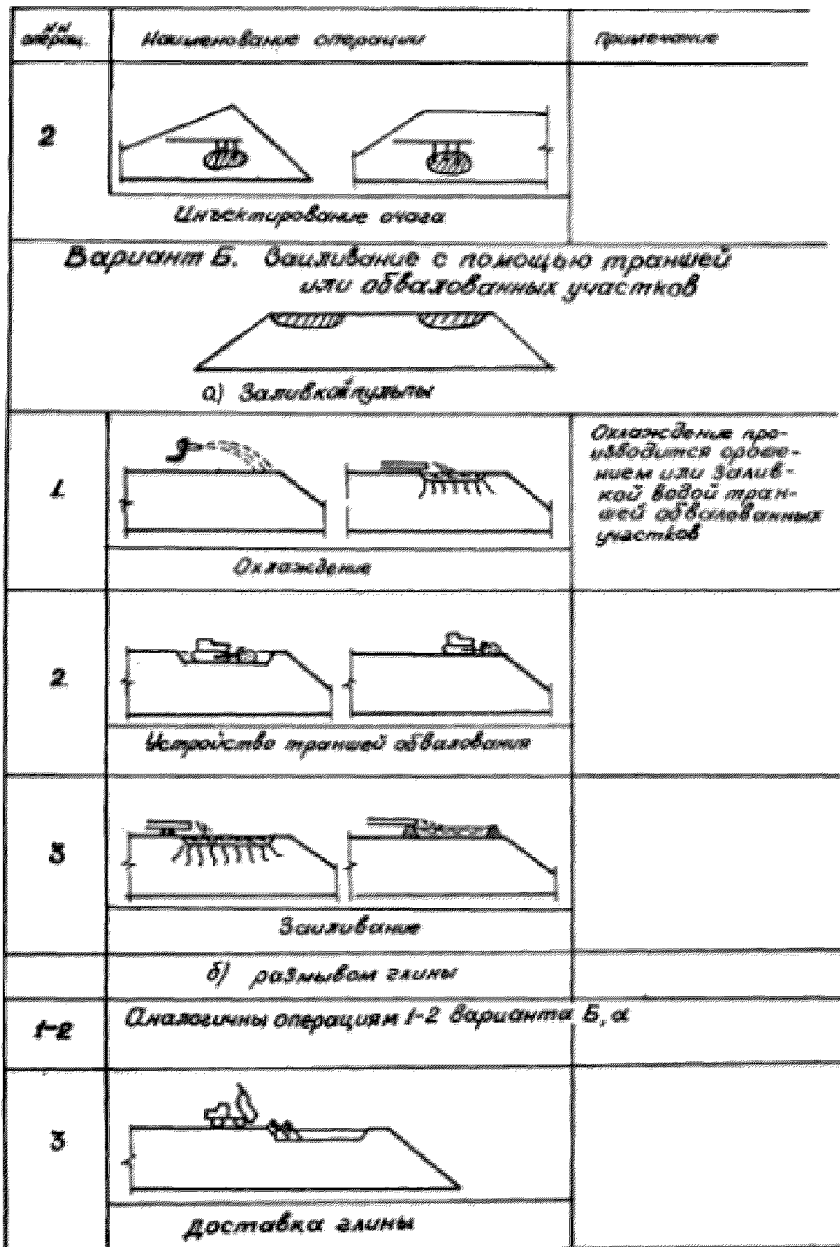 №№ операц.
Наименование операции
Примечание
2
Инъектирование очага
Вариант Б. Заиливание с помощью траншей
или обвалованных участков
а) Заливкой пульпы
1
Охлаждение
Охлаждение про-
изводится ороше-
нием или залив-
кой водой тран-
шей обвалованных
участков
2
Устройство траншей обвалования
3
Заиливание
б) размывом глины
1-2
Аналогичны операциям 1-2 варианта Б, а
3
Доставка глины